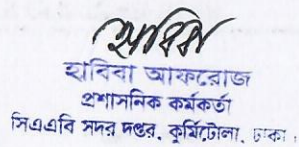 হাবিবা
হাবিবা আফরোজ
প্রশাসনিক কর্মকর্তা
সিএএবি সদর দপ্তর, কুর্মিটোলা, ঢাকা।